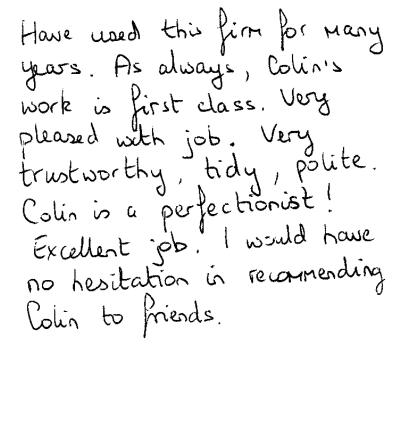 Have used this firm for many
years. As always, Colin's
work is first class. Very
pleased with job. Very
trustworthy, tidy, polite.
Colin is a perfectionist!
Excellent job. I would have
no hesitation in recommending
Colin to friends.